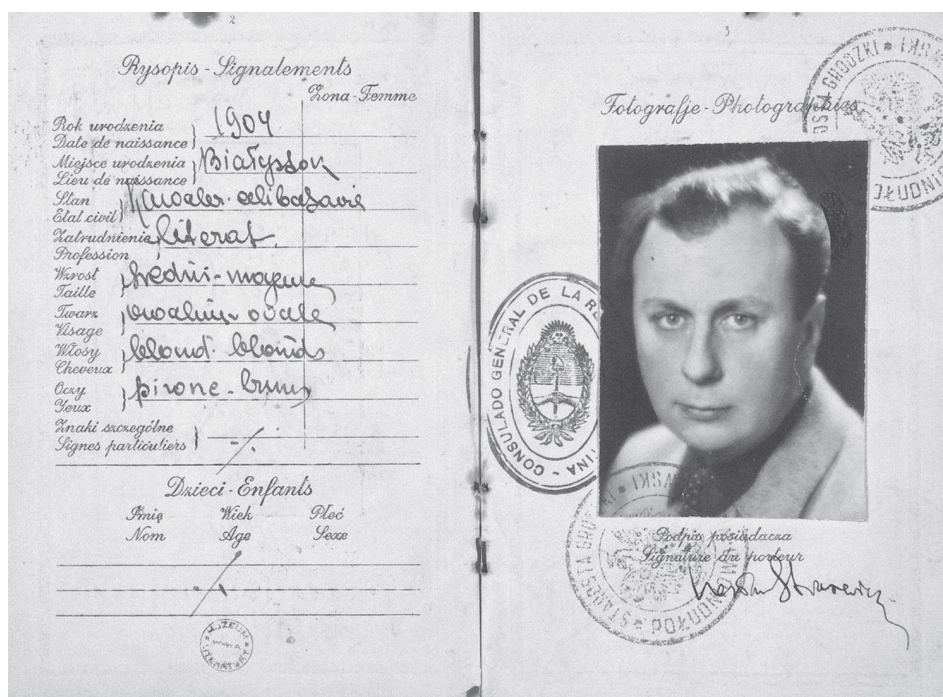 2
Rysopis - Signalements
Żona - Femme
Rok urodzenia
Date de naissance } 1904
Miejsce urodzenia
Lieu de naissance } Białystok
Stan
Etat civil } kawaler - célibataire
Zatrudnienie
Profession } literat
Wzrost
Taille } średni - moyenne
Twarz
Visage } owalny - ovale
Włosy
Cheveux } blond - blonds
Oczy
Yeux } piwne - bruns
Znaki szczególne
Signes particuliers } -
Dzieci - Enfants
Imię Wiek Płeć
Nom Age Sexe
MUZEUM LITERATURY
3
Fotografje - Photographies
STAROSTA GRODZKI
CONSULADO GENERAL DE LA
Podpis posiadacza
Signature du porteur
STAROSTA GRODZKI POŁUDNIOWO